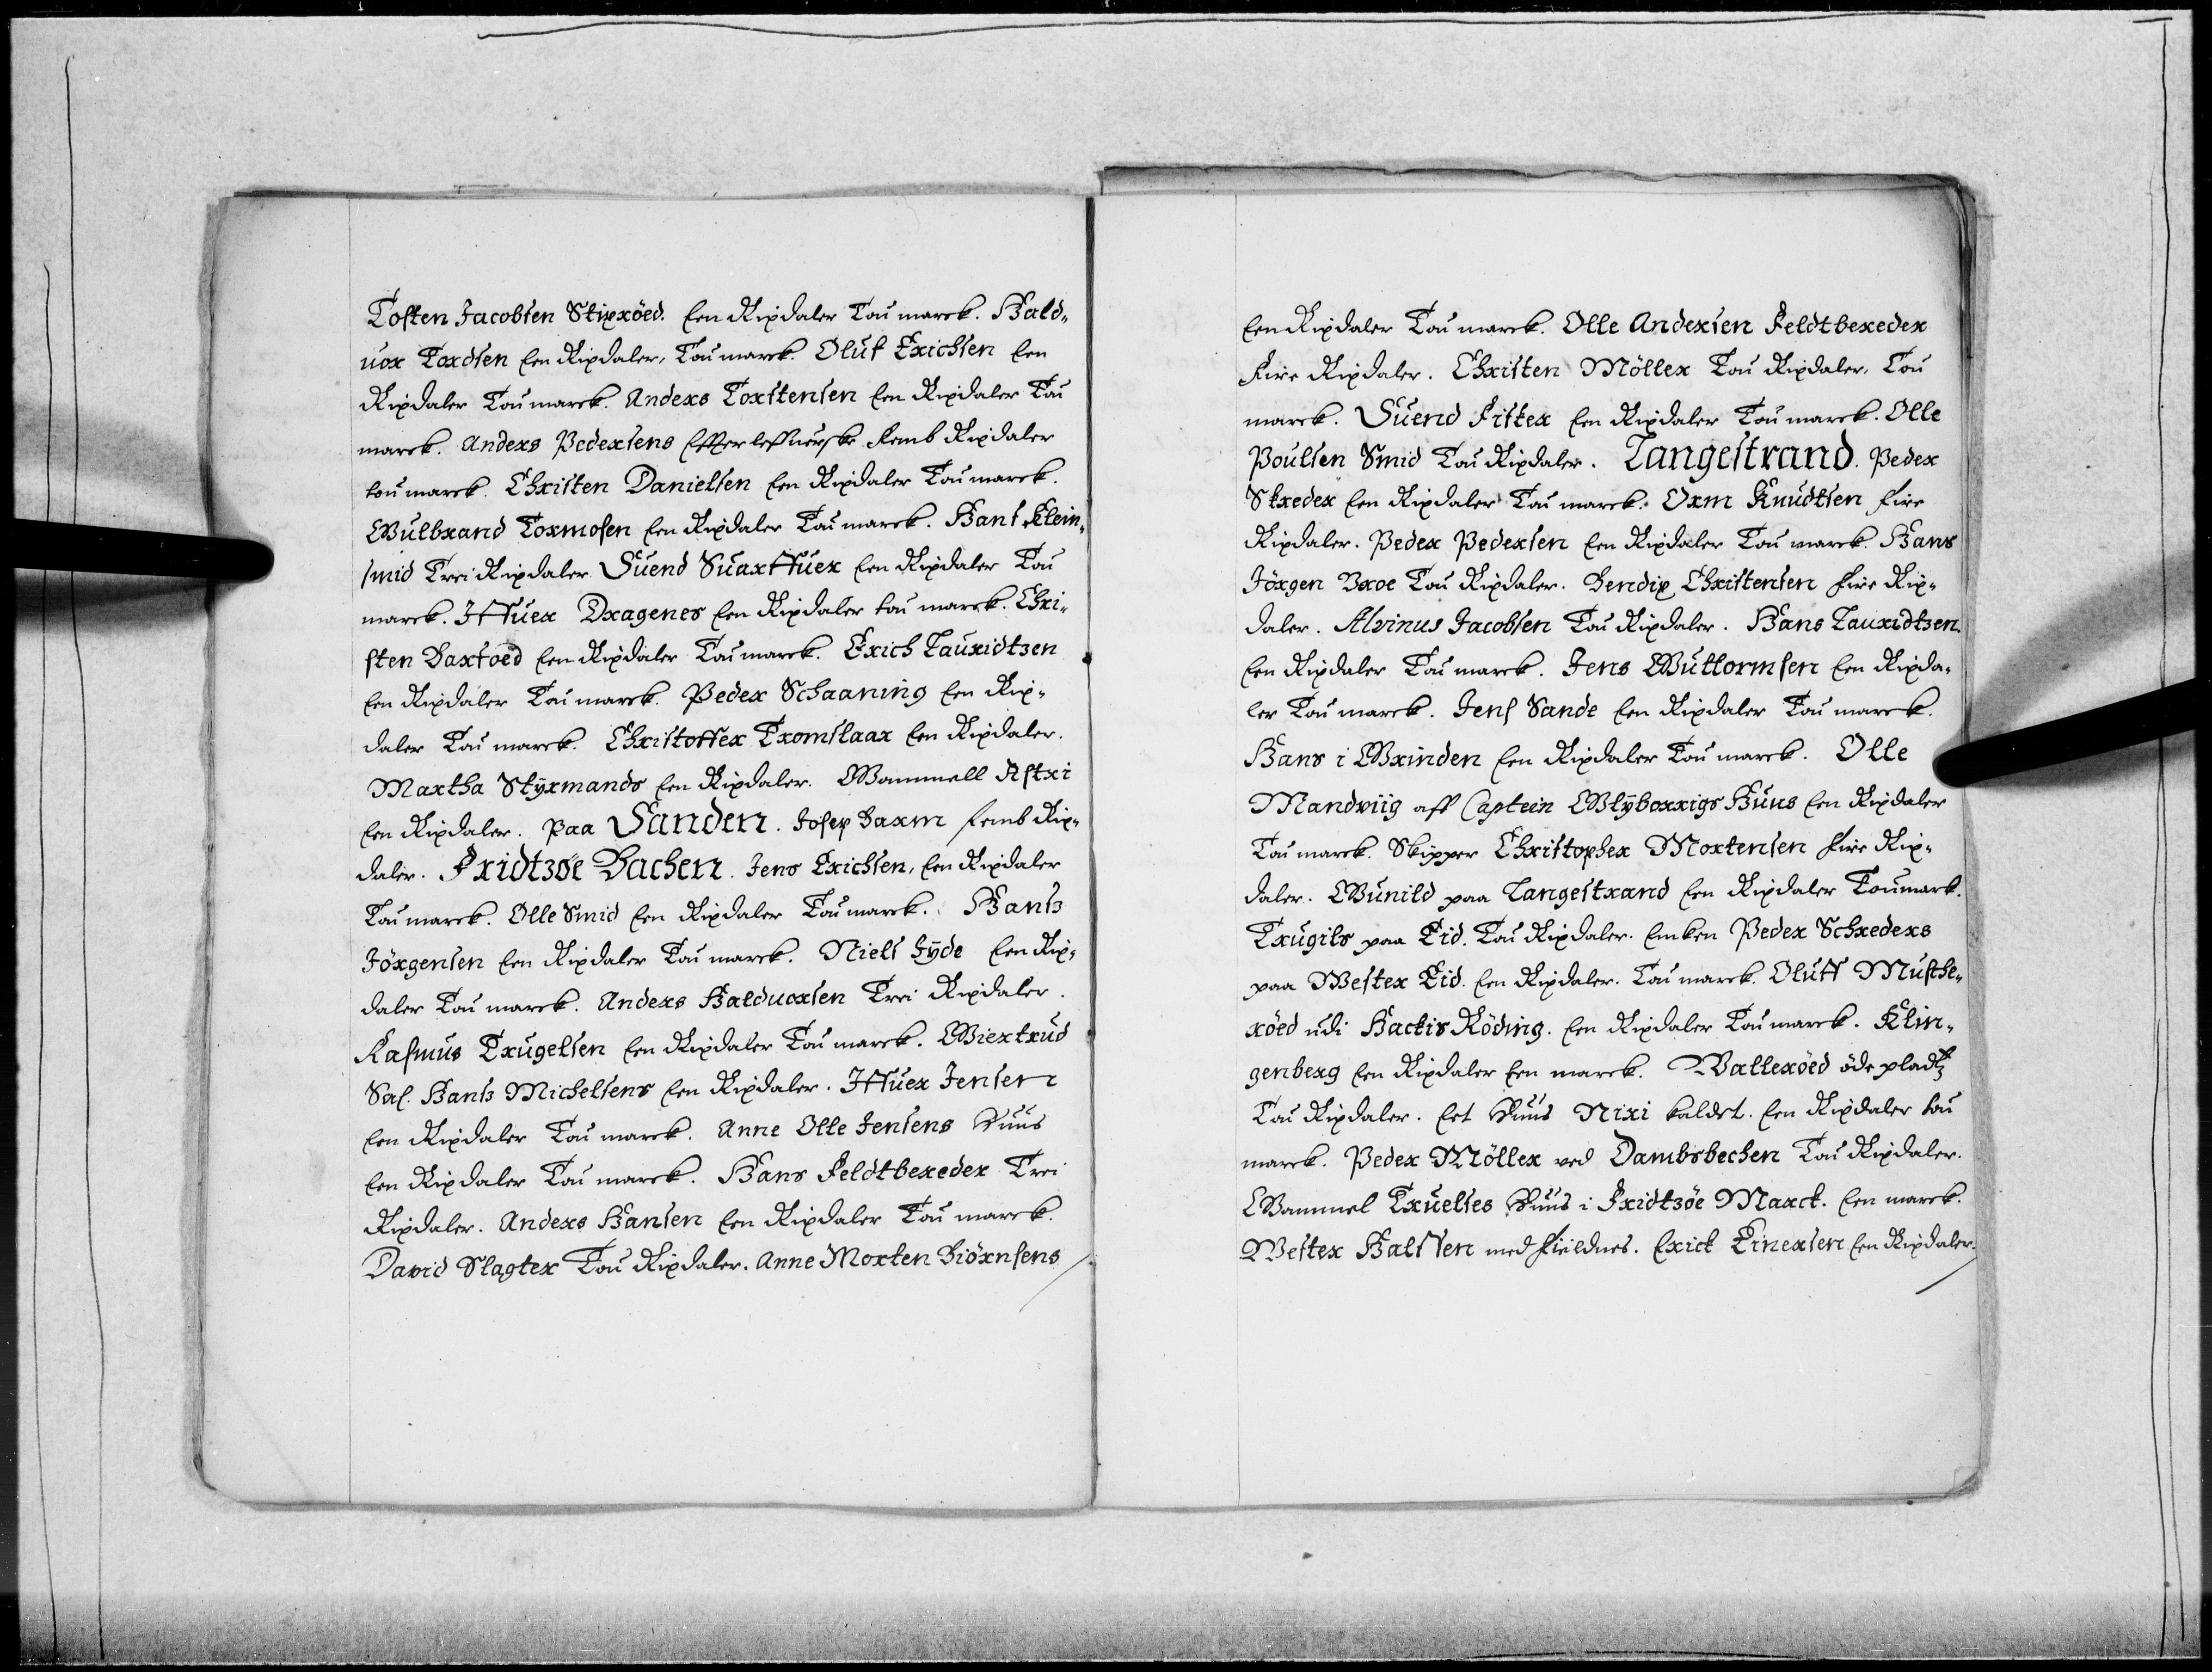 Tosten Jacobsen Stixröed. Een Rixdaler Tou marck. Hald¬
uor Tordsen Een Rixdaler, Tou marck. Oluf Erichsen Een
Rixdaler Tou marck. Anders Torstensen Een Rixdaler Tou
marck. Anders Pedersens Effterleffuerske Femb Rixdaler
tou marck. Christen Danielsen Een Rixdaler Tou marck.
Gulbrand Tormosen Een Rixdaler Tou marck. Hans Klein¬
smid Trei Rixdaler Suend Suarffuer Een Rixdaler Tou
marck. Iffuer Dragenes Een Rixdaler tou marck. Chri¬
sten Barfoed Een Rixdaler Tou marck. Erich Lauridtzen
Een Rixdaler Tou marck. Peder Schaaning Een Rix¬
daler Tou marck. Christoffer Tromslaar Een Rixdaler.
Martha Styrmands Een Rixdaler. Gammell Astri
Een Rixdaler. Paa Sanden. Josep Barm femb Rix¬
daler. Fridtzöe Bachen. Jens Erichsen, Een Rixdaler
Tou marck. Olle Smid Een Rixdaler Tou marck. Hanß
Jörgensen Een Rixdaler Tou marck. Niels Jyde Een Rix¬
daler Tou marck. Anders Halduorsen Trei Rixdaler.
Rasmus Trugelsen Een Rixdaler Tou marck. Giertrud
Sal. Hanß Michelsens Een Rixdaler. Iffuer Jensen
Een Rixdaler Tou marck. Anne Olle Jensens Huus
Een Rixdaler Tou marck. Hans Feldtbereder Trei
Rixdaler. Anders Hansen Een Rixdaler Tou marck.
David Slagter Tou Rixdaler. Anne Morten Biörnsens
Een Rixdaler Tou marck. Olle Andersen Feldtbereder
Fire Rixdaler. Christen Möller Tou Rixdaler, Tou
marck. Suend Fisker Een Rixdaler Tou marck. Olle
Poulsen Smid Tou Rixdaler. Langestrand. Peder
Skreder Een Rixdaler Tou marck. Orm Knudtsen Fire
Rixdaler. Peder Pedersen Een Rixdaler Tou marck. Hans
Jörgen Broe Tou Rixdaler. Bendix Christensen Fire Rix¬
daler. Alvinus Jacobsen Tou Rixdaler. Hans Lauridtzen
Een Rixdaler Tou marck. Jens Guttormsen Een Rixda¬
ler Tou marck. Jens Sande Een Rixdaler Tou marck.
Hans i Grinden Een Rixdaler Tou marck. Olle
Mandviig aff Captein Glyborrigs Huus Een Rixdaler
Tou marck. Skipper Christopher Mortensen Fire Rix¬
daler. Gunild paa Langestrand Een Rixdaler Toumark.
Trugils paa Eid. Tou Rixdaler. Encken Peder Schreders
paa Wester Eid. Een Rixdaler. Tou marck. Oluff Musthe¬
röed udi Hackis Röding. Een Rixdaler Tou marck. Klin¬
genberg Een Rixdaler Een marck. Valleröed öde pladtz
Tou Rixdaler. Eet Huus Nixi kaldet. Een Rixdaler tou
marck. Peder Möller ved Dambsbechen Tou Rixdaler.
Gammel Truelses Huus i Fridtzöe Marck. Een marck.
Wester Halsen med Fieldnes. Erick Einersen Een Rixdaler.